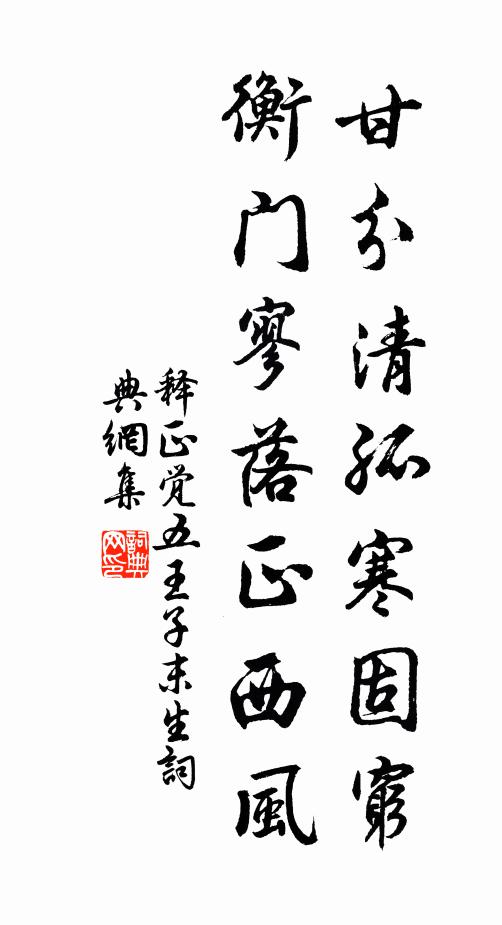 甘分清孤寒固窮
衡门寥落正西風
释正觉五王子末生詞
典網集
詞典网印